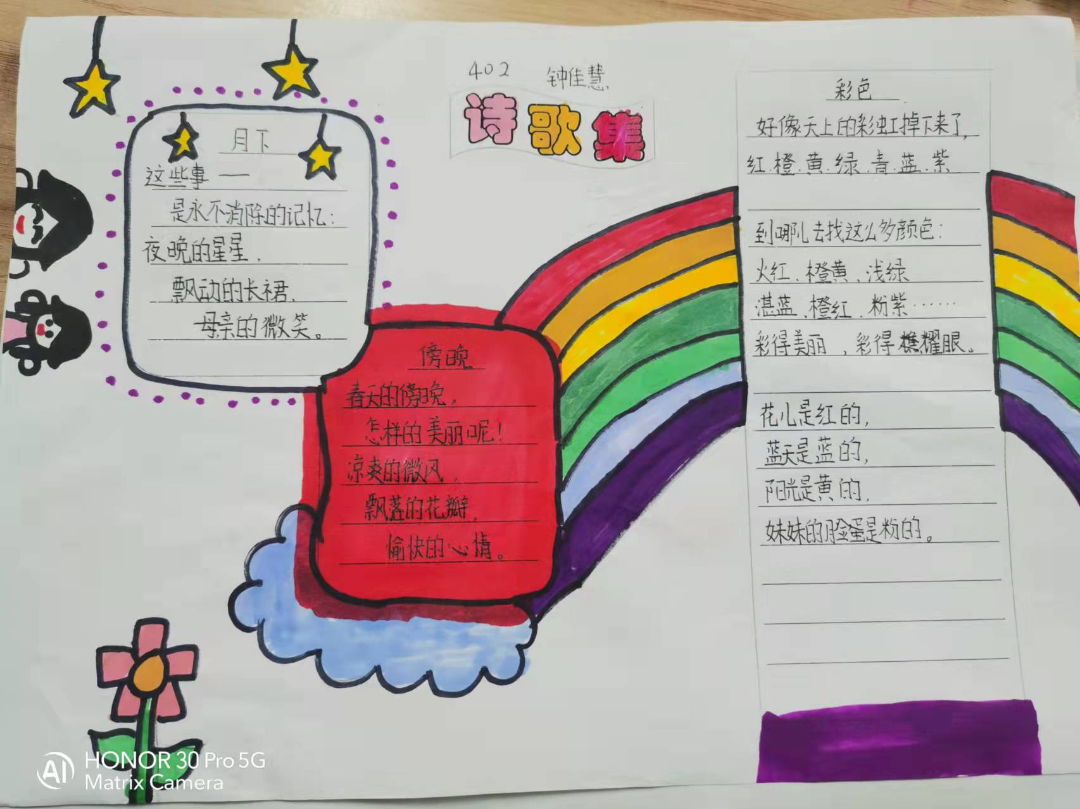 402 钟佳慧
诗歌集
月下
这些事——
是永不消除的记忆:
夜晚的星星、
飘动的长裙、
母亲的微笑。
傍晚
春天的傍晚,
怎样的美丽呢!
凉爽的微风、
飘落的花瓣、
愉快的心情。
彩色
好像天上的彩虹掉下来了,
红、橙、黄、绿、青、蓝、紫
到哪儿去找这么多颜色:
火红、橙黄、浅绿
湛蓝、橙红、粉紫……
彩得美丽,彩得耀眼。
花儿是红的,
蓝天是蓝的,
阳光是黄的,
妹妹的脸蛋是粉的。
HONOR 30 Pro 5G
Matrix Camera
AI